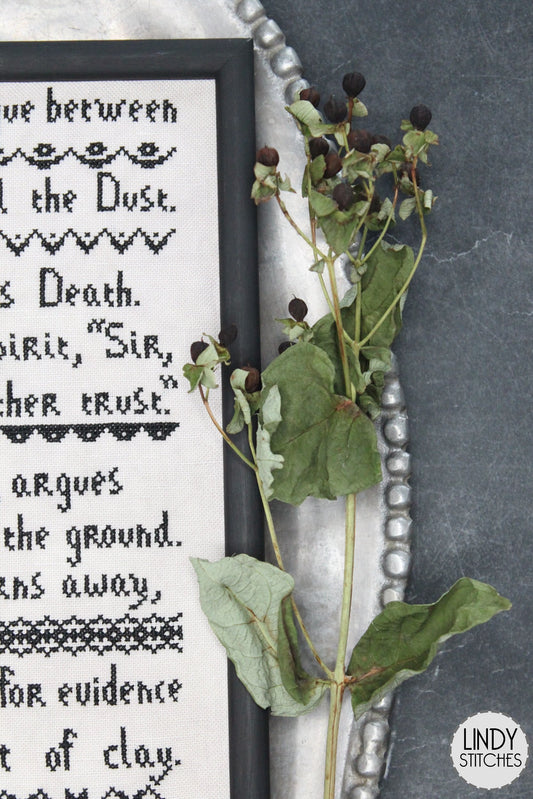 ue between
the Dust.
s Death.
pirit, "Sir,
ther trust."
argues
the ground.
rns away,
for evidence
t of clay.
LINDY
STITCHES